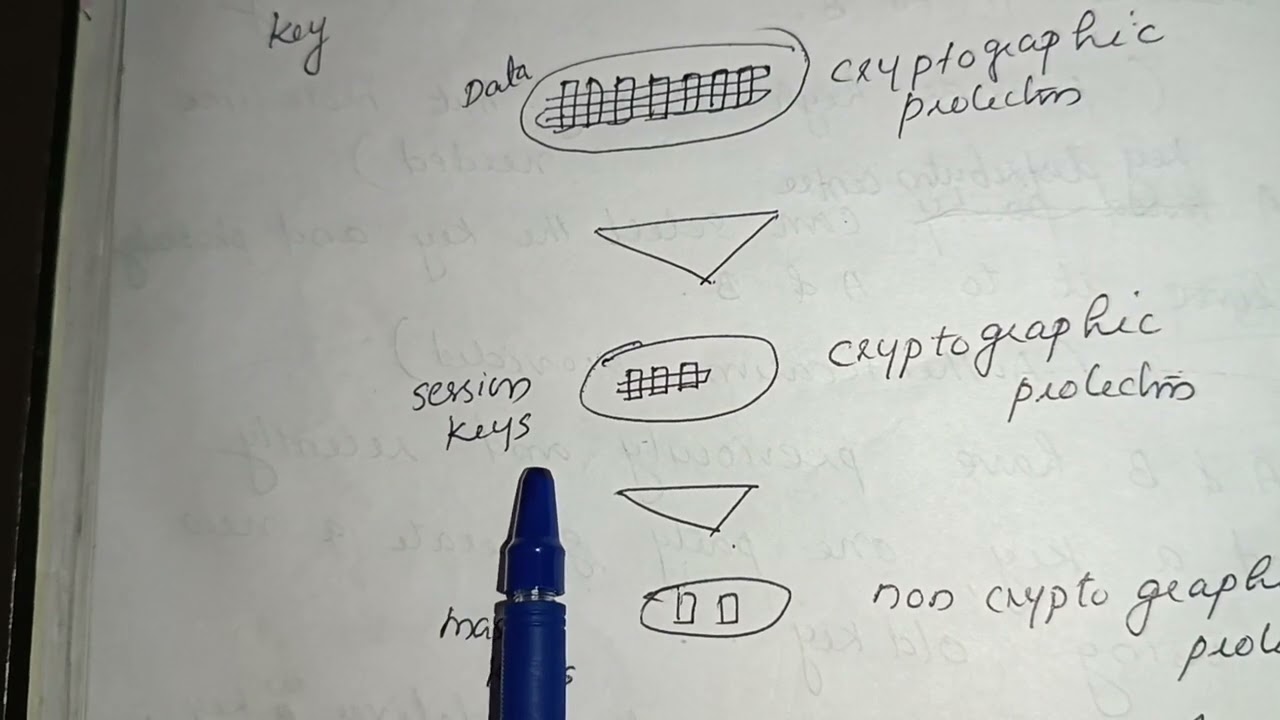 key
Data
cryptographic
protection
session
keys
cryptographic
protection
mas
s
non crypto graph
prote